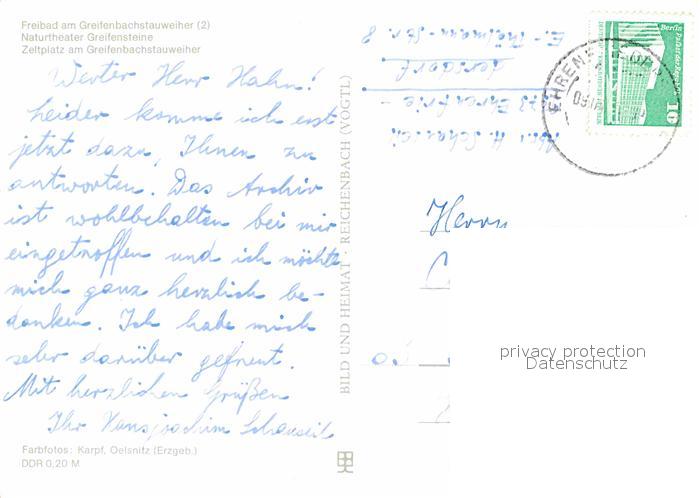 Freibad am Greifenbachstauweiher (2)
Naturtheater Greifensteine
Zeltplatz am Greifenbachstauweiher
Werter Herr Hahn!
Leider komme ich erst
jetzt dazu, Ihnen zu
antworten. Das Archiv
ist wohlbehalten bei mir
eingetroffen und ich möchte
mich ganz herzlich be-
danken. Ich habe mich
sehr darüber gefreut.
Mit herzlichen Grüßen
Ihr Hansjoachim
Farbfotos: Karpf, Oelsnitz (Erzgeb.)
DDR 0,20 M
BILD UND HEIMAT · REICHENBACH (VOGTL)
Berlin
10
Herrn
privacy protection
Datenschutz